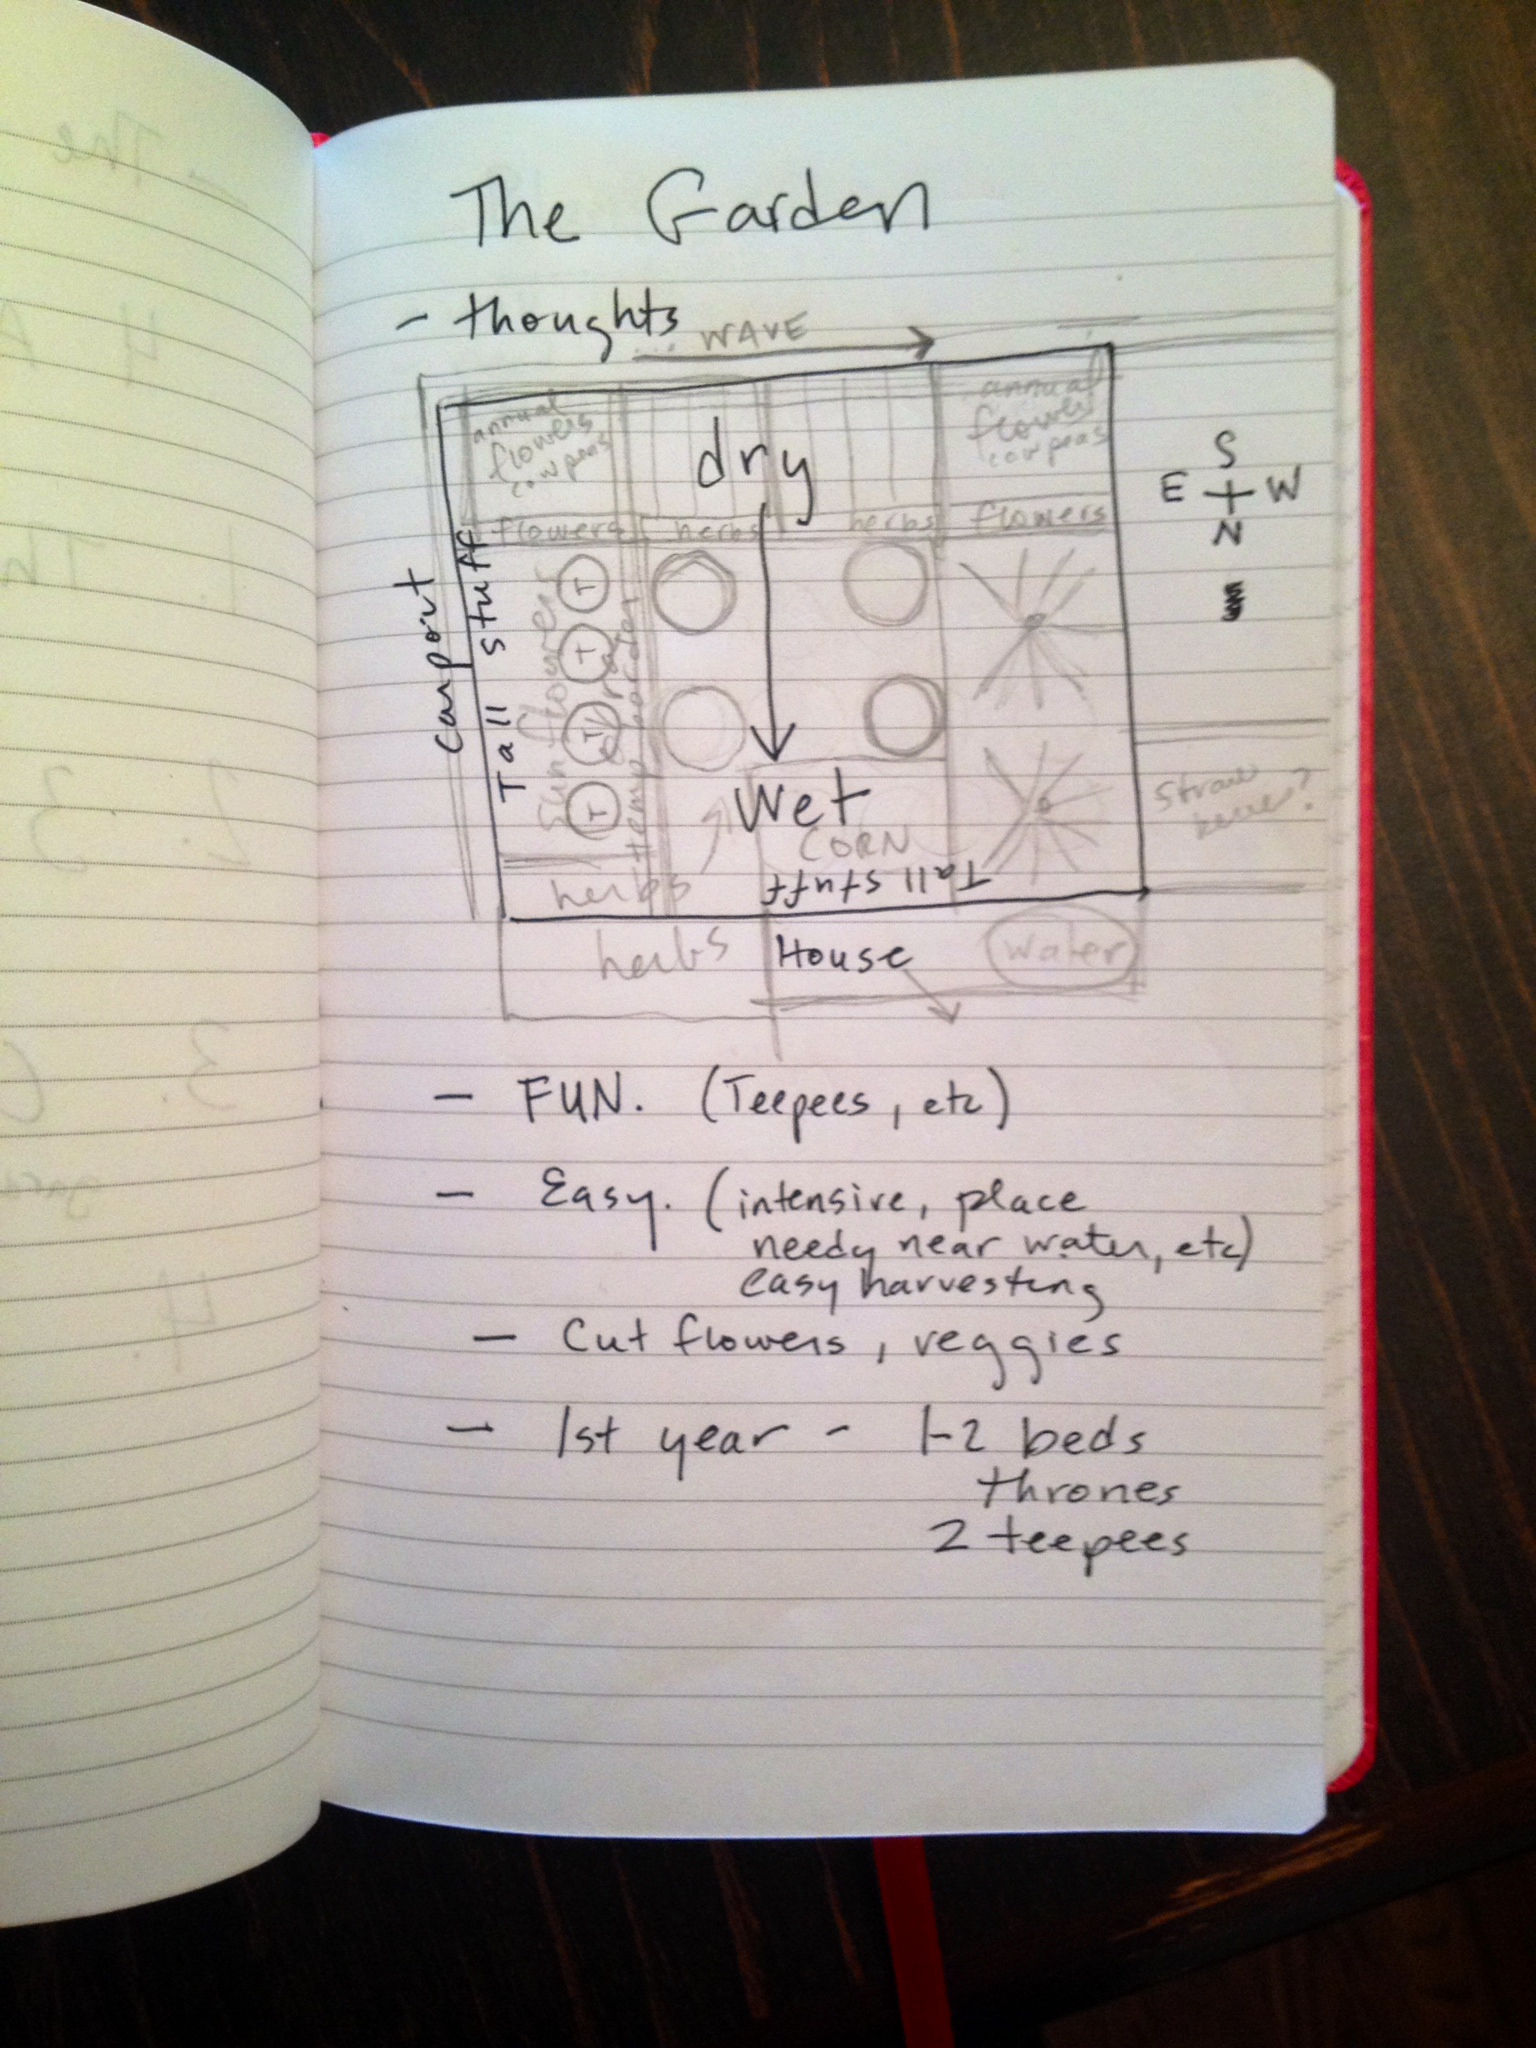 The Garden
- thoughts
... WAVE
annual
flowers
cowpeas
dry
annual
flowers
cowpeas
S
E W
N
flowers herbs herbs flowers
carport
Tall stuff
sunflowers
T
T
T
T
temp border
Wet
CORN
Tall stuff
straw
herbs
herbs
House
water
- FUN. (Teepees, etc)
- Easy. (intensive, place
needy near water, etc)
easy harvesting
- Cut flowers, veggies
- 1st year - 1-2 beds
thrones
2 teepees
The